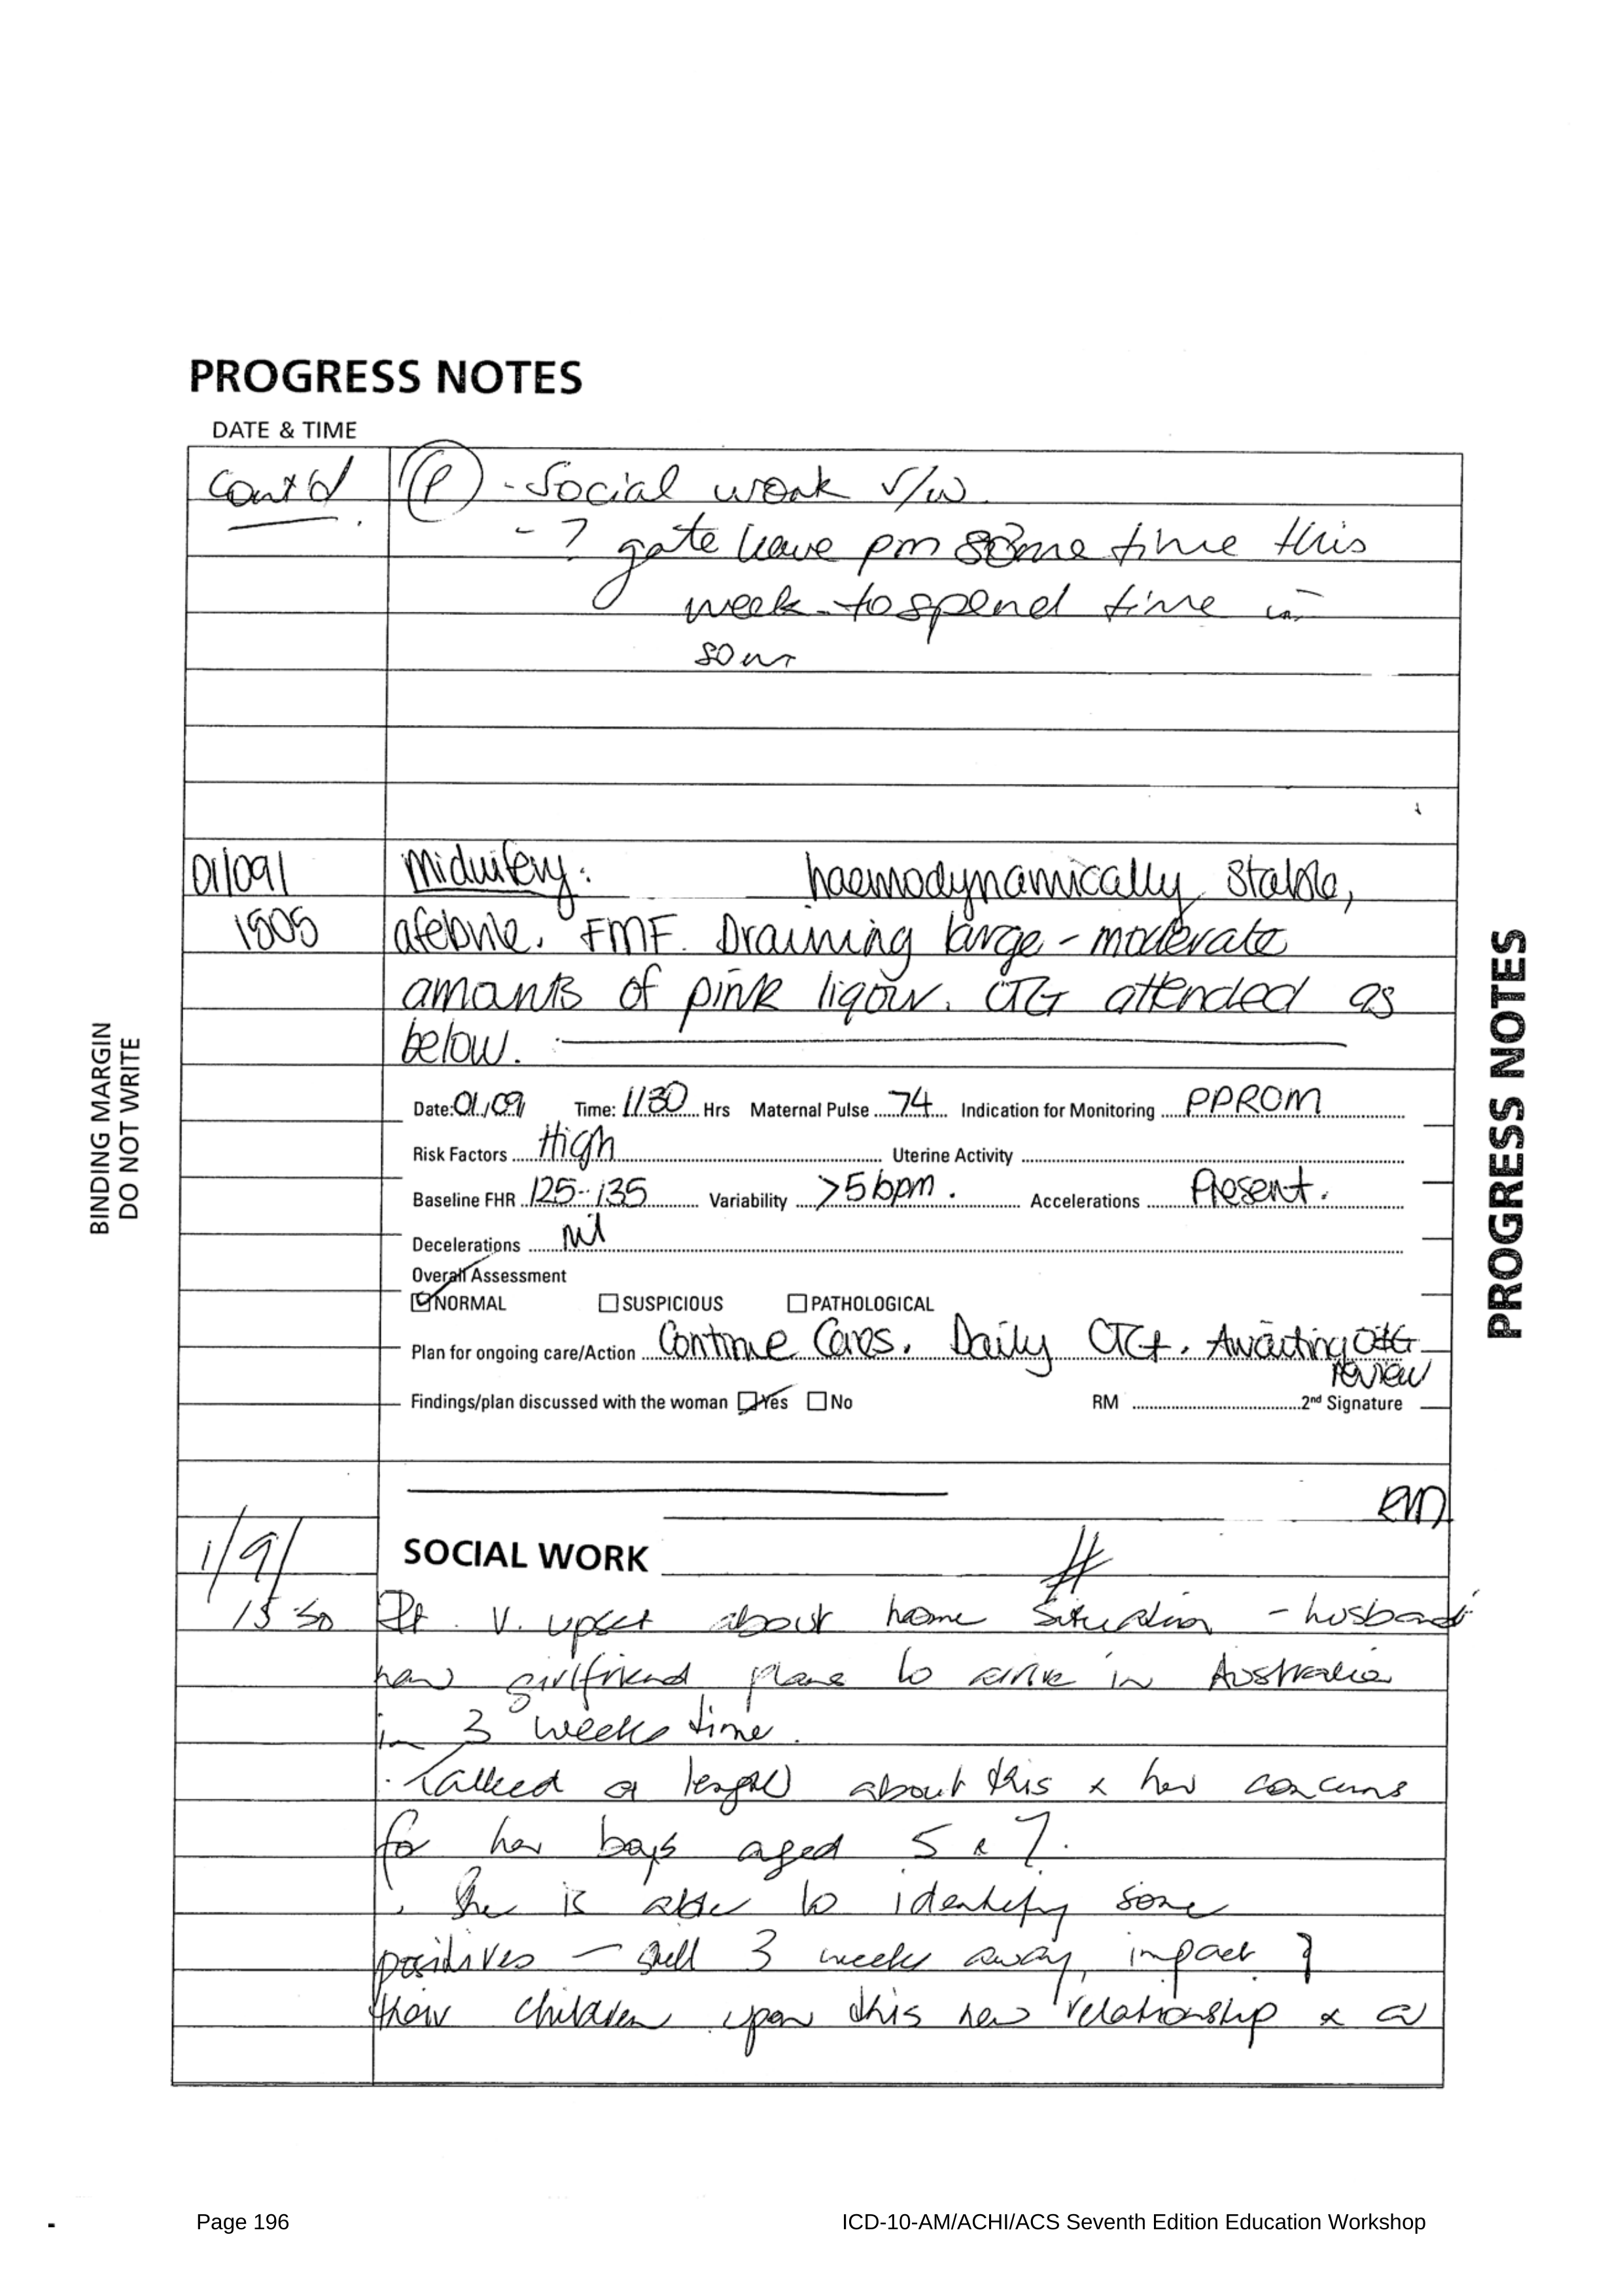 PROGRESS NOTES
DATE & TIME
Cont'd (P) - Social work r/w
- ? gate leave pm some time this
week to spend time
sons
01/09/ Midwifery: haemodynamically stable,
1505 afebrile. FMF. Draining large - moderate
amounts of pink liqour. CTG attended as
below.
Date: 01/09 Time: 1130 Hrs Maternal Pulse 74 Indication for Monitoring PPROM
Risk Factors High Uterine Activity
Baseline FHR 125-135 Variability >5bpm. Accelerations Present.
Decelerations nil
Overall Assessment
NORMAL SUSPICIOUS PATHOLOGICAL
Plan for ongoing care/Action Continue Cares. Daily CTG. Awaiting O&G
review
Findings/plan discussed with the woman Yes No RM 2nd Signature
RM
1/9/ SOCIAL WORK #
15:50 Pt v. upset about home situation - husband
new girlfriend plans to arrive in Australia
in 3 weeks time.
. Talked at length about this & her concerns
for her boys aged 5 & 7.
. She is able to identify some
positives - still 3 weeks away, impact of
their children upon this new relationship & a
BINDING MARGIN
DO NOT WRITE
PROGRESS NOTES
Page 196 ICD-10-AM/ACHI/ACS Seventh Edition Education Workshop